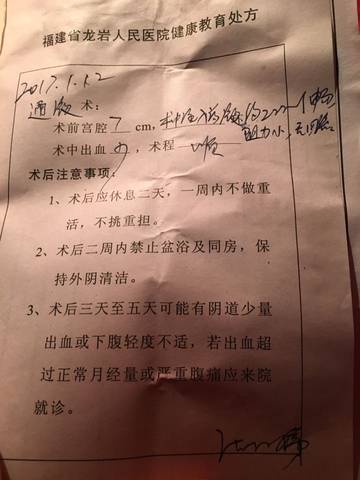 福建省龙岩人民医院健康教育处方
2017.1.12
通液术:
术前宫腔 7 cm, 术中注药液约20ml 通畅
阻力小, 无回流。
术中出血 少 , 术程 顺
术后注意事项:
1、术后应休息二天，一周内不做重
活，不挑重担。
2、术后二周内禁止盆浴及同房，保
持外阴清洁。
3、术后三天至五天可能有阴道少量
出血或下腹轻度不适，若出血超
过正常月经量或严重腹痛应来院
就诊。